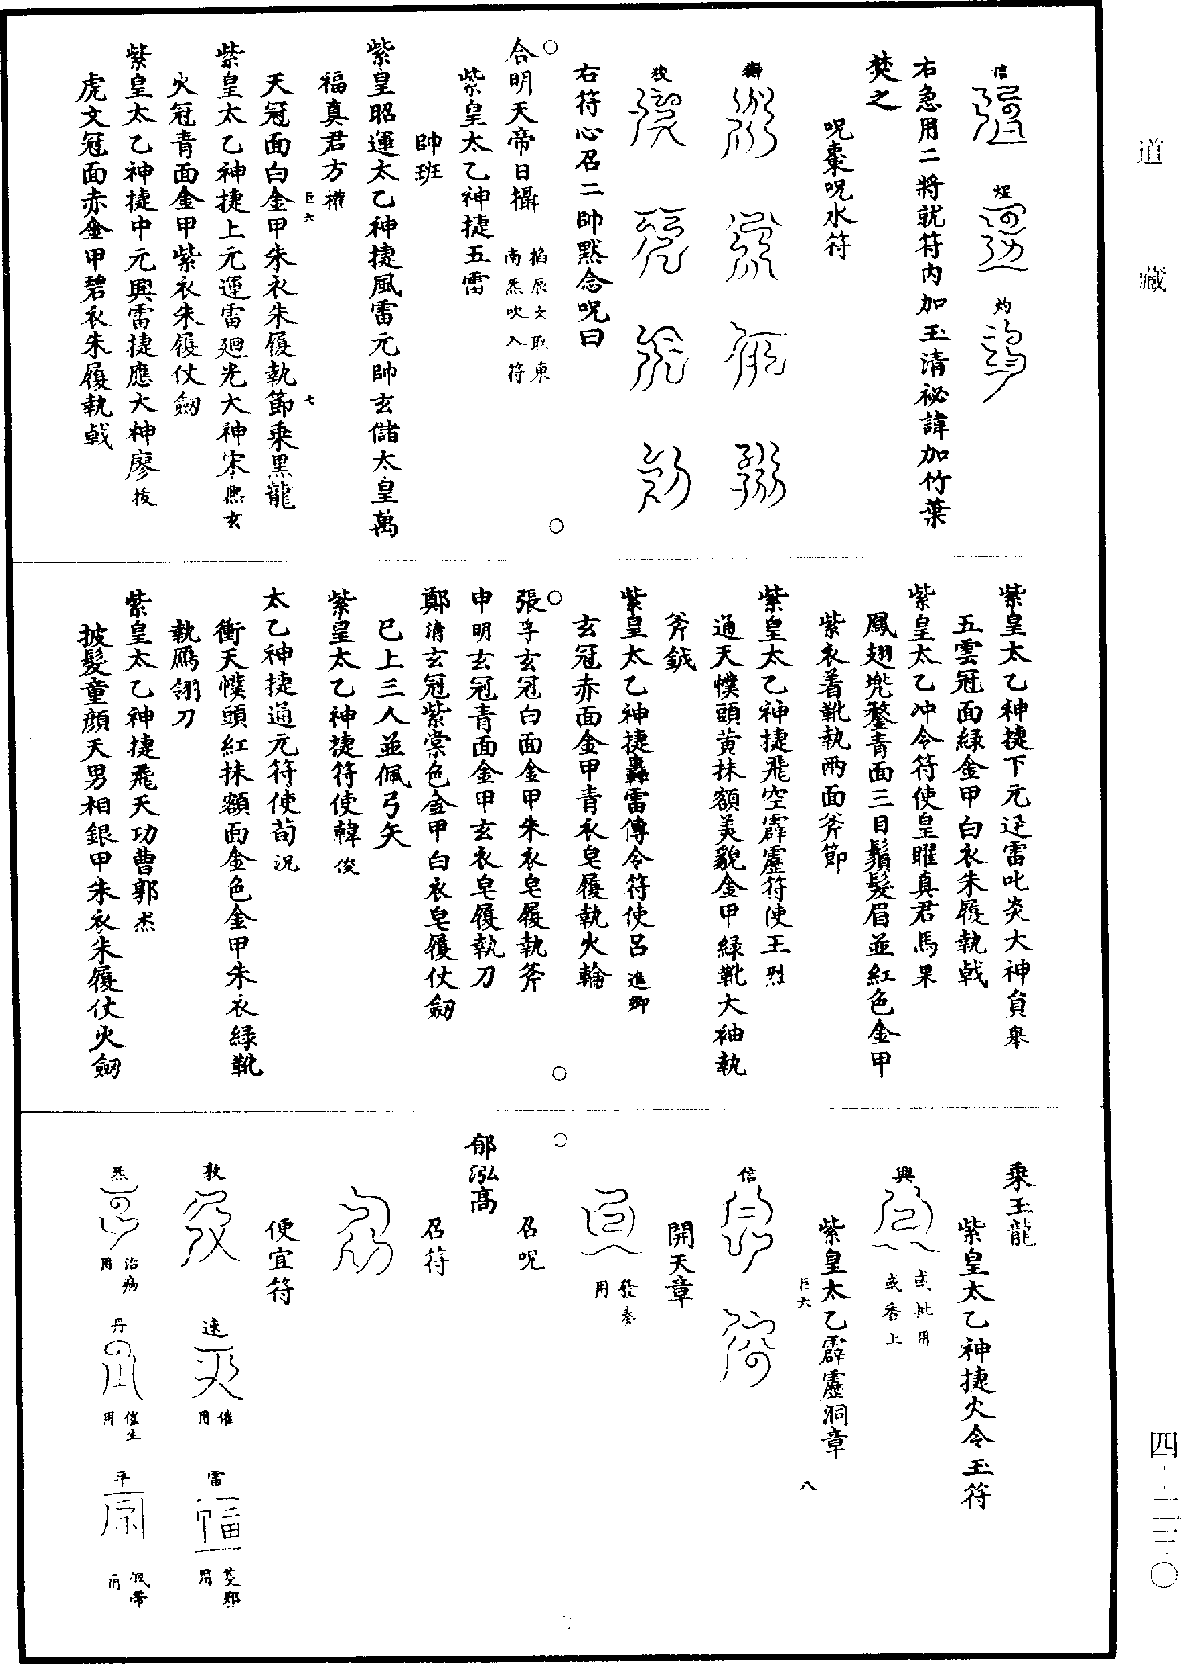 道藏
四·二三〇
信
煜
灼
右急用二將就符內加玉清祕諱加竹葉
焚之
呪棗呪水符
右符心召二帥黙念呪曰
合明天帝日攝 掐辰文取東南炁吹入符
紫皇太乙神捷五雷
帥班
紫皇昭運太乙神捷風雷元帥玄儲太皇萬
福真君方
巨六 七
天冠面白金甲朱衣朱履執節乘黑龍
紫皇太乙神捷上元運雷廻光大神宋熙玄
火冠青面金甲紫衣朱履仗劒
紫皇太乙神捷中元興雷捷應大神廖
虎文冠面赤金甲碧衣朱履執戟
紫皇太乙神捷下元迅雷叱炎大神貟舉
五雲冠面綠金甲白衣朱履執戟
紫皇太乙冲令符使皇睢真君馬杲
鳳翅兜鍪青面三目鬚髮眉並紅色金甲
紫衣着靴執兩面斧節
紫皇太乙神捷飛空霹靂符使王烈
通天幞頭黃抹額美貌金甲綠靴大袖執
斧鉞
紫皇太乙神捷轟雷傳令符使呂進卿
玄冠赤面金甲青衣皂履執火輪
張孚玄冠白面金甲朱衣皂履執斧
申明玄冠青面金甲玄衣皂履執刀
鄭清玄冠紫棠色金甲白衣皂履仗劒
已上三人並佩弓矢
紫皇太乙神捷符使韓俊
太乙神捷通元符使荀况
衝天幞頭紅抹額面金色金甲朱衣綠靴
執鴈翎刀
紫皇太乙神捷飛天功曹郭杰
披髮童顏天男相銀甲朱衣朱履仗火劒
乘玉龍
紫皇太乙神捷火令玉符
興 或批用或香上
紫皇太乙霹靂洞章
巨六 八
信
開天章
發奏用
召呪
郁泓高
召符
便宜符
敕
速 催用
雷
炁 治病用
丹 催生用
平